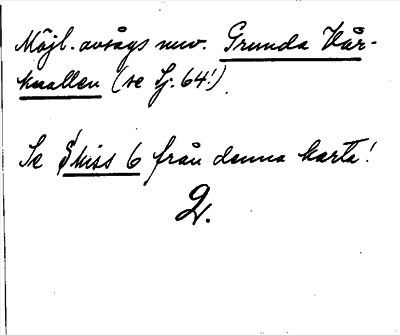 Möjl. avsågs nuv. Grunda Vår-
knallen (se Sj. 64!).
Se Skiss 6 från denna karta!
2.